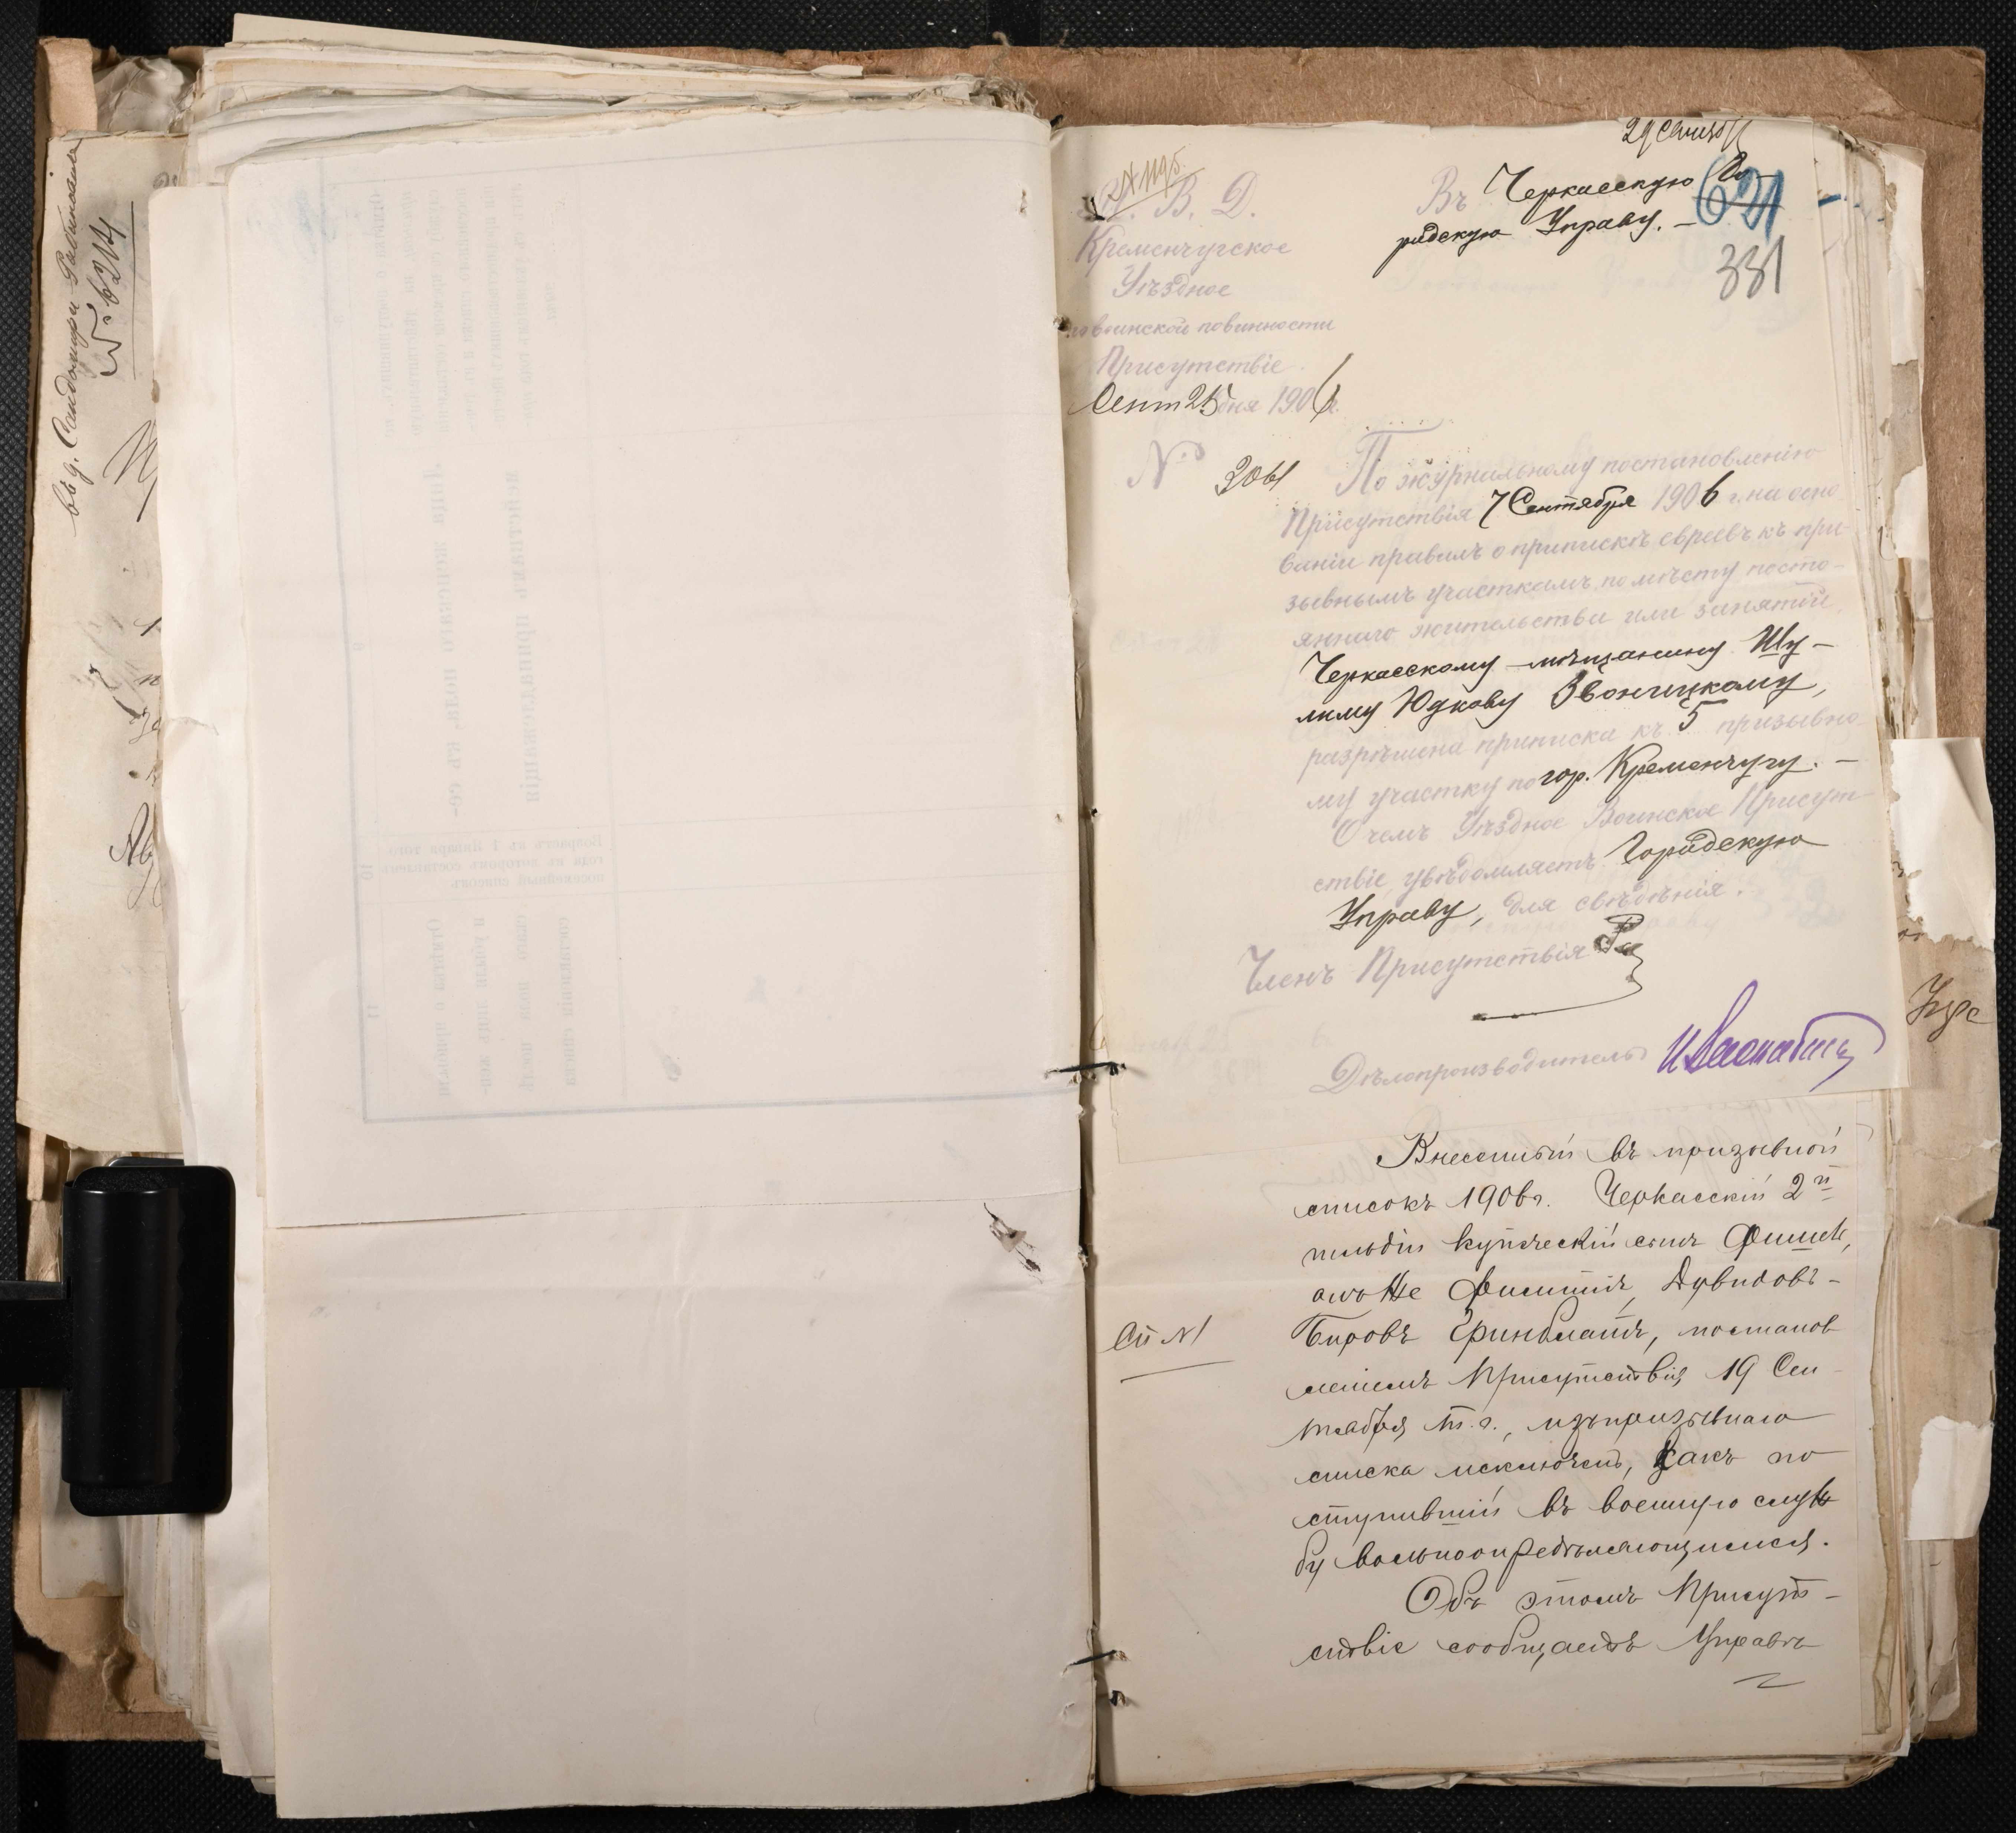 въ д. Сандомири Рабиновича
№ 6214
29 Сент
М. В. Д.
Кременчугское
Уѣздное
по воинской повинности
Присутствіе
Сент 25 дня 1906 г.
№ 3061
Въ Черкасскую Го-
родскую Управу. —
621
331
По журнальному постановленію
Присутствія 7 Сентября 1906 г. на осно
ваніи правилъ о припискѣ евреевъ къ при-
зывнымъ участкамъ, по мѣсту посто-
яннаго жительства или занятій,
Черкасскому мѣщанину Шу-
лиму Юдкову Звоницкому,
разрѣшена приписка къ 5 призывно-
му участку по гор. Кременчугу. —
О чемъ Уѣздное Воинское Присут-
ствіе, увѣдомляетъ Городскую
Управу, для свѣдѣнія.
Членъ Присутствія
Дѣлопроизводитель
Внесенный въ призывной
списокъ 1906 г. Черкасскій 2й
гильдіи купеческій сынъ Фишель,
онъ же Филиппъ, Дувидовъ-
Бировъ Гринблатъ, постанов
Сп № 1
леніемъ Присутствія 19 Сен-
тября т. г., изъ призывнаго
списка исключенъ, какъ по
ступившій въ военную служ
бу вольноопредѣляющимся.
Объ этомъ Присут-
ствіе сообщаетъ Управѣ